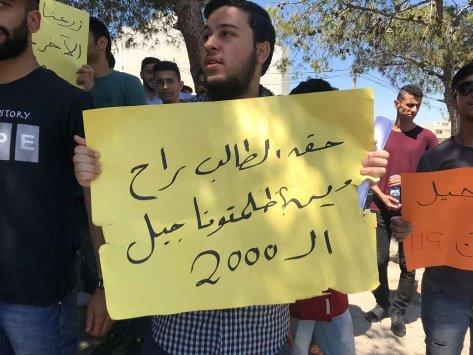 زرعنا
الآخر
STORY
P E
حقه الطالب راح
وين؟ظلمتونا جيل
الـ 2000
جيل
؟!!